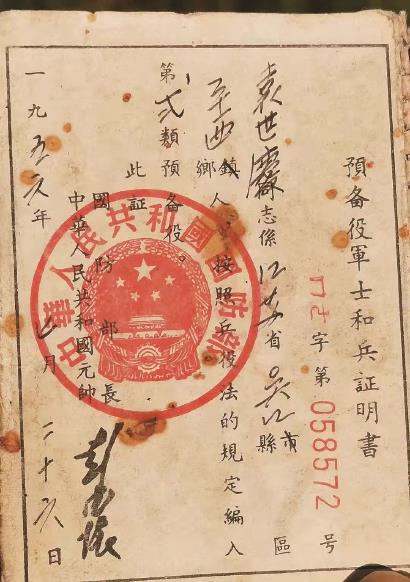 預备役軍士和兵証明書
字第058572号
袁世 志係江苏省吴江縣市 區
鄉鎮人 按照兵役法的規定編入
第弍類預备役。
此証
國防部長
中華人民共和國元帥
彭德怀
一九五六年 月二十六日
中華人民共和國國防部